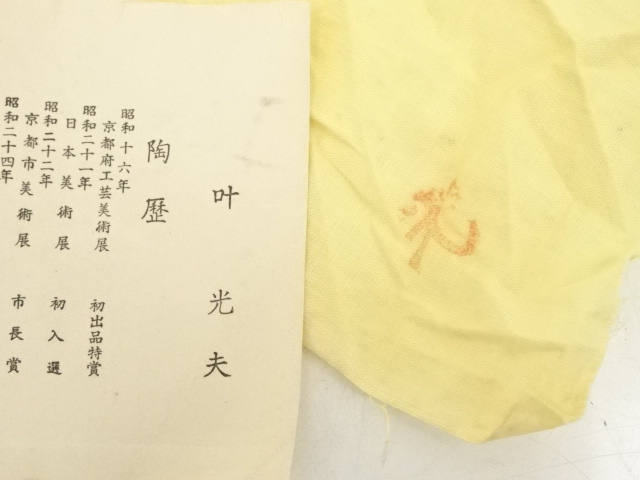 叶光夫
陶歴
昭和十六年
京都府工芸美術展 初出品特賞
昭和二十一年
日本美術展 初入選
昭和二十二年
京都市美術展 市長賞
昭和二十四年